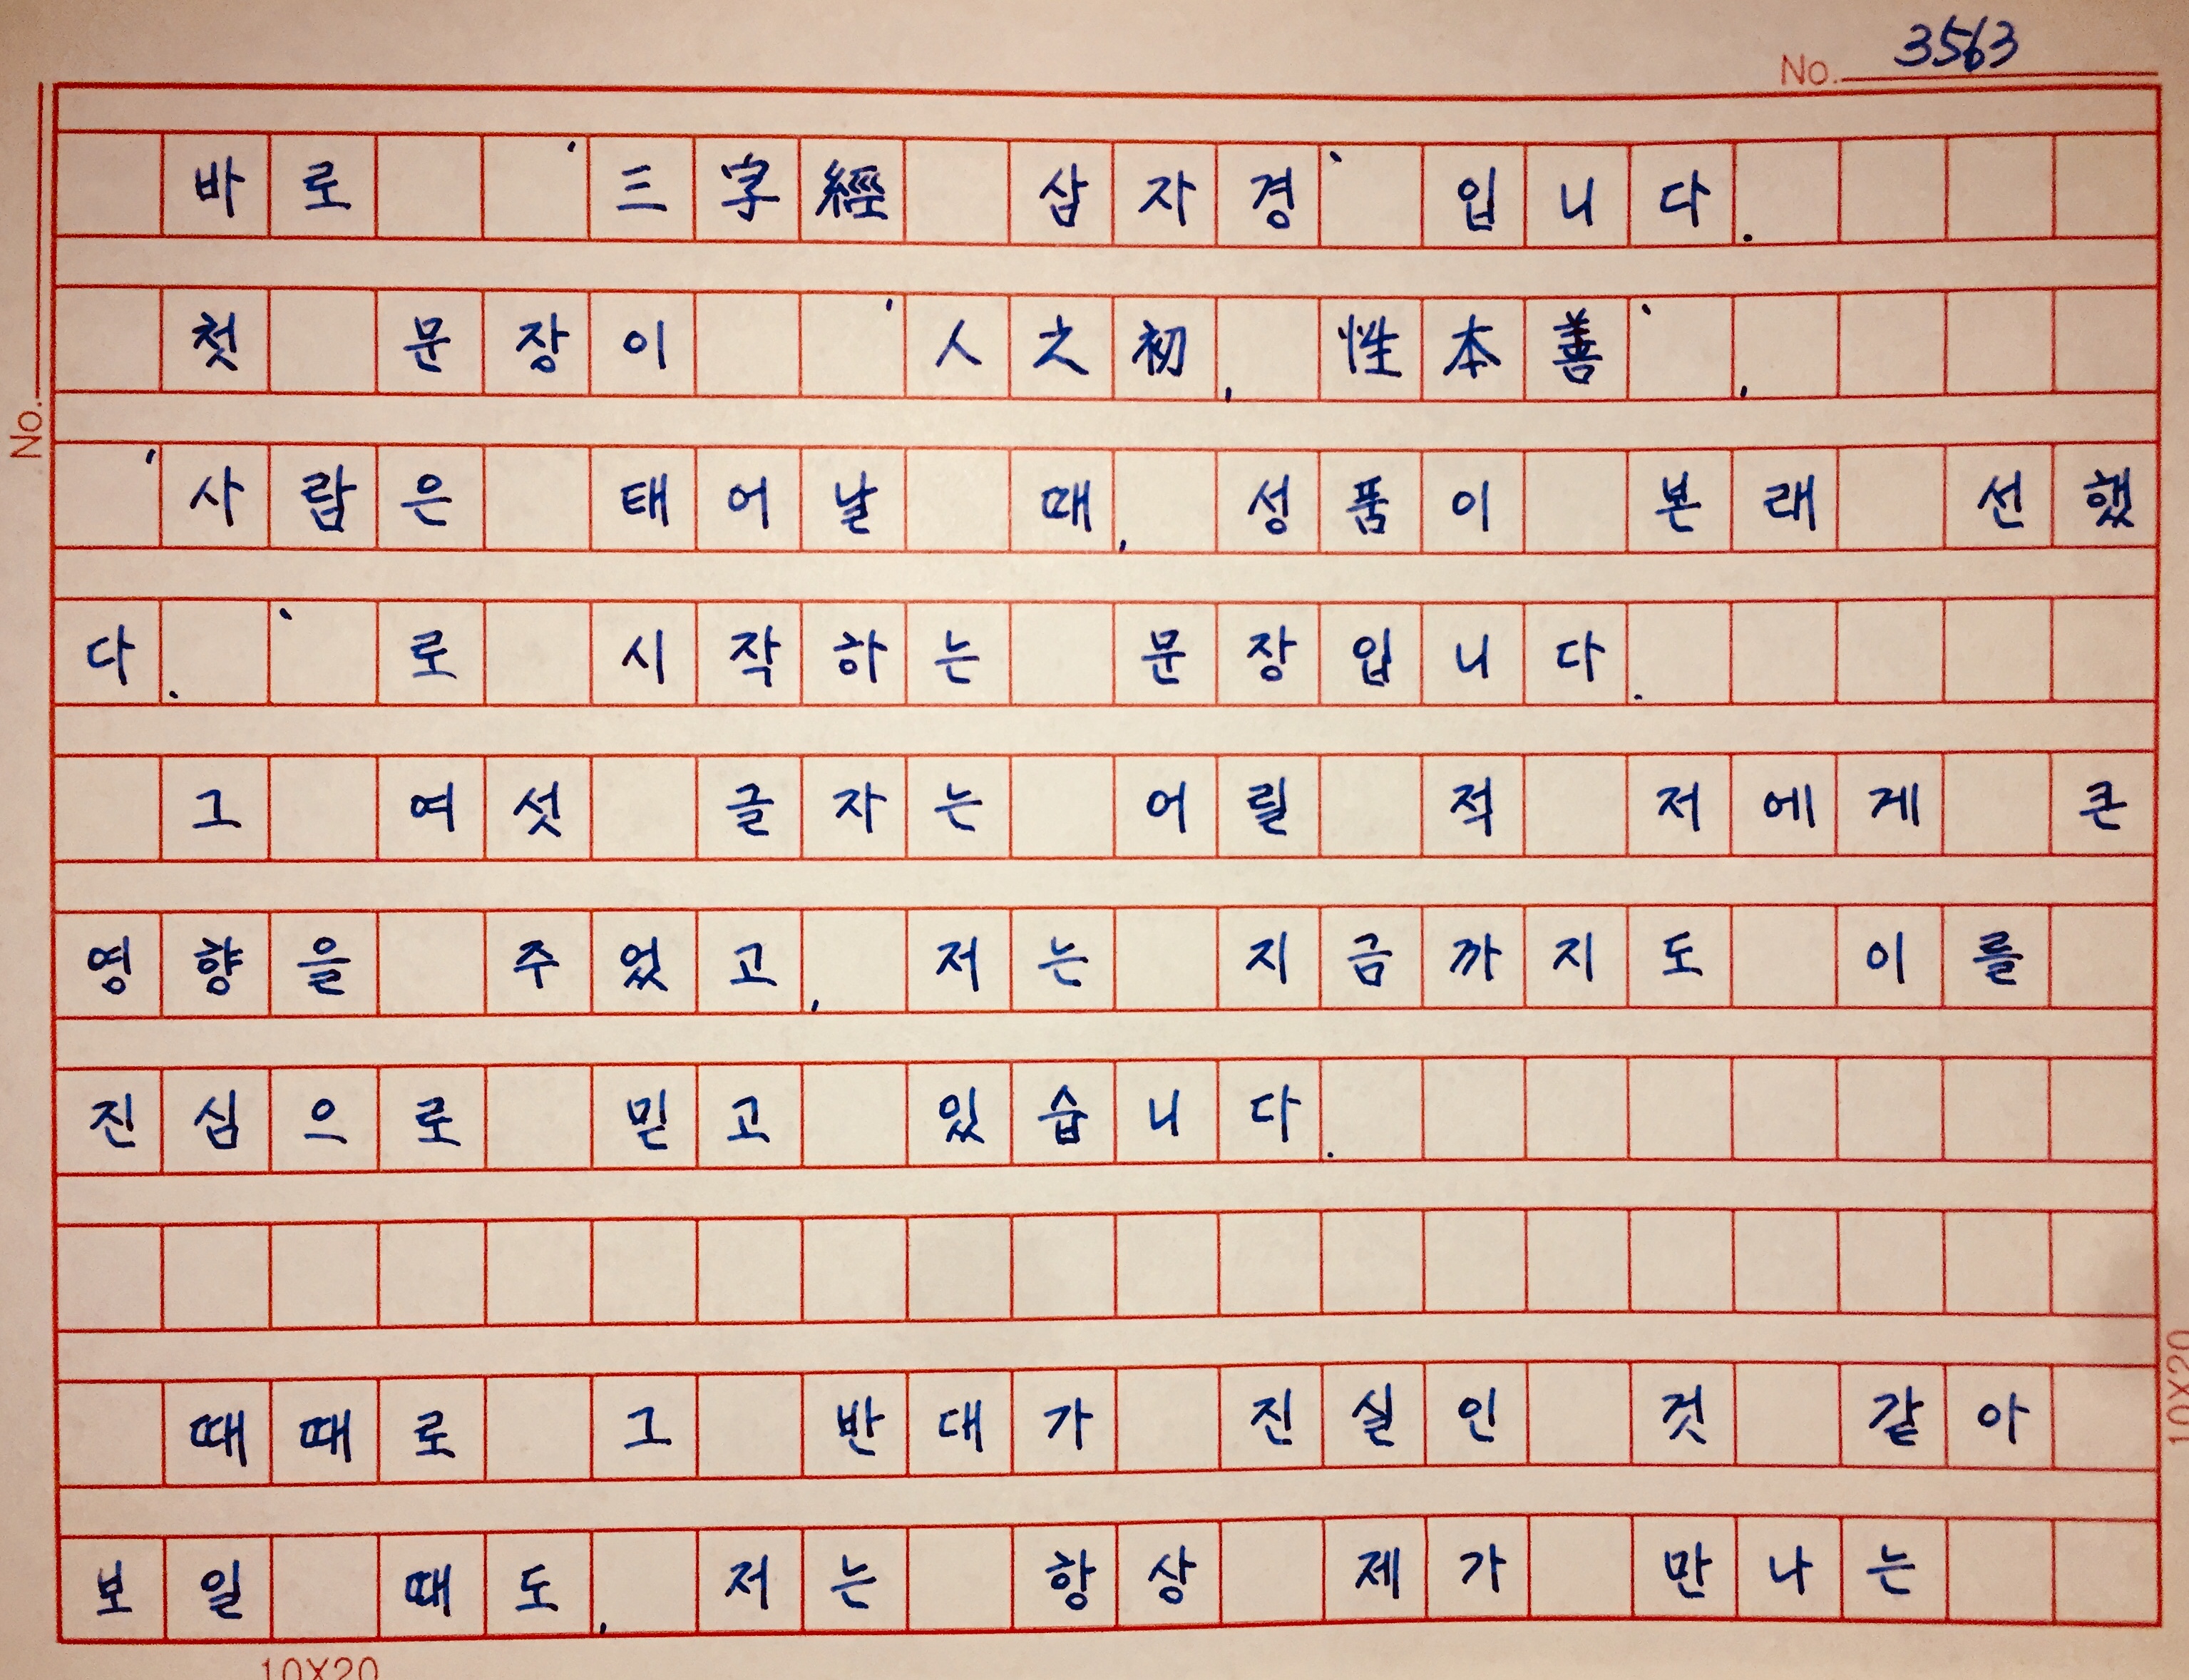 No. 3563
바로 '三字經 삼자경' 입니다.
첫 문장이 '人之初, 性本善',
'사람은 태어날 때, 성품이 본래 선했
다.' 로 시작하는 문장입니다.
그 여섯 글자는 어릴 적 저에게 큰
영향을 주었고, 저는 지금까지도 이를
진심으로 믿고 있습니다.
때때로 그 반대가 진실인 것 같아
보일 때도, 저는 항상 제가 만나는
No.
10X20
10X20